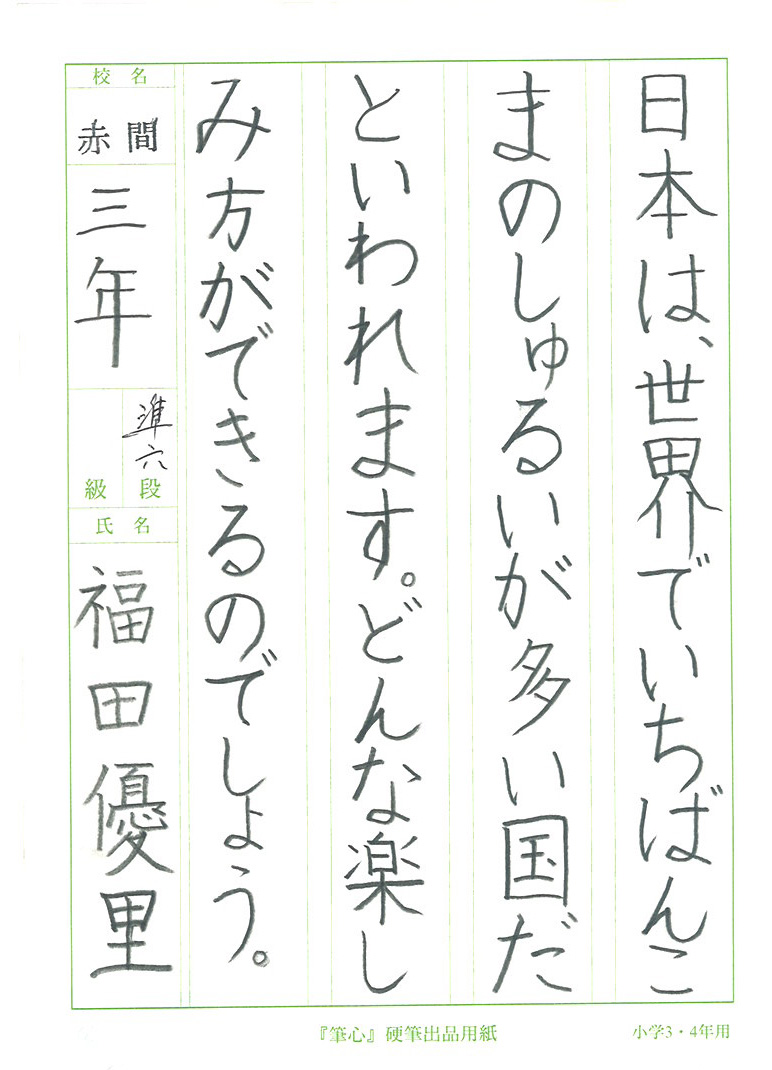 日本は、世界でいちばんこ
まのしゅるいが多い国だ
といわれます。どんな楽し
み方ができるのでしょう。
校名
赤間
三年
準六
級段
氏名
福田優里
『筆心』硬筆出品用紙
小学3・4年用